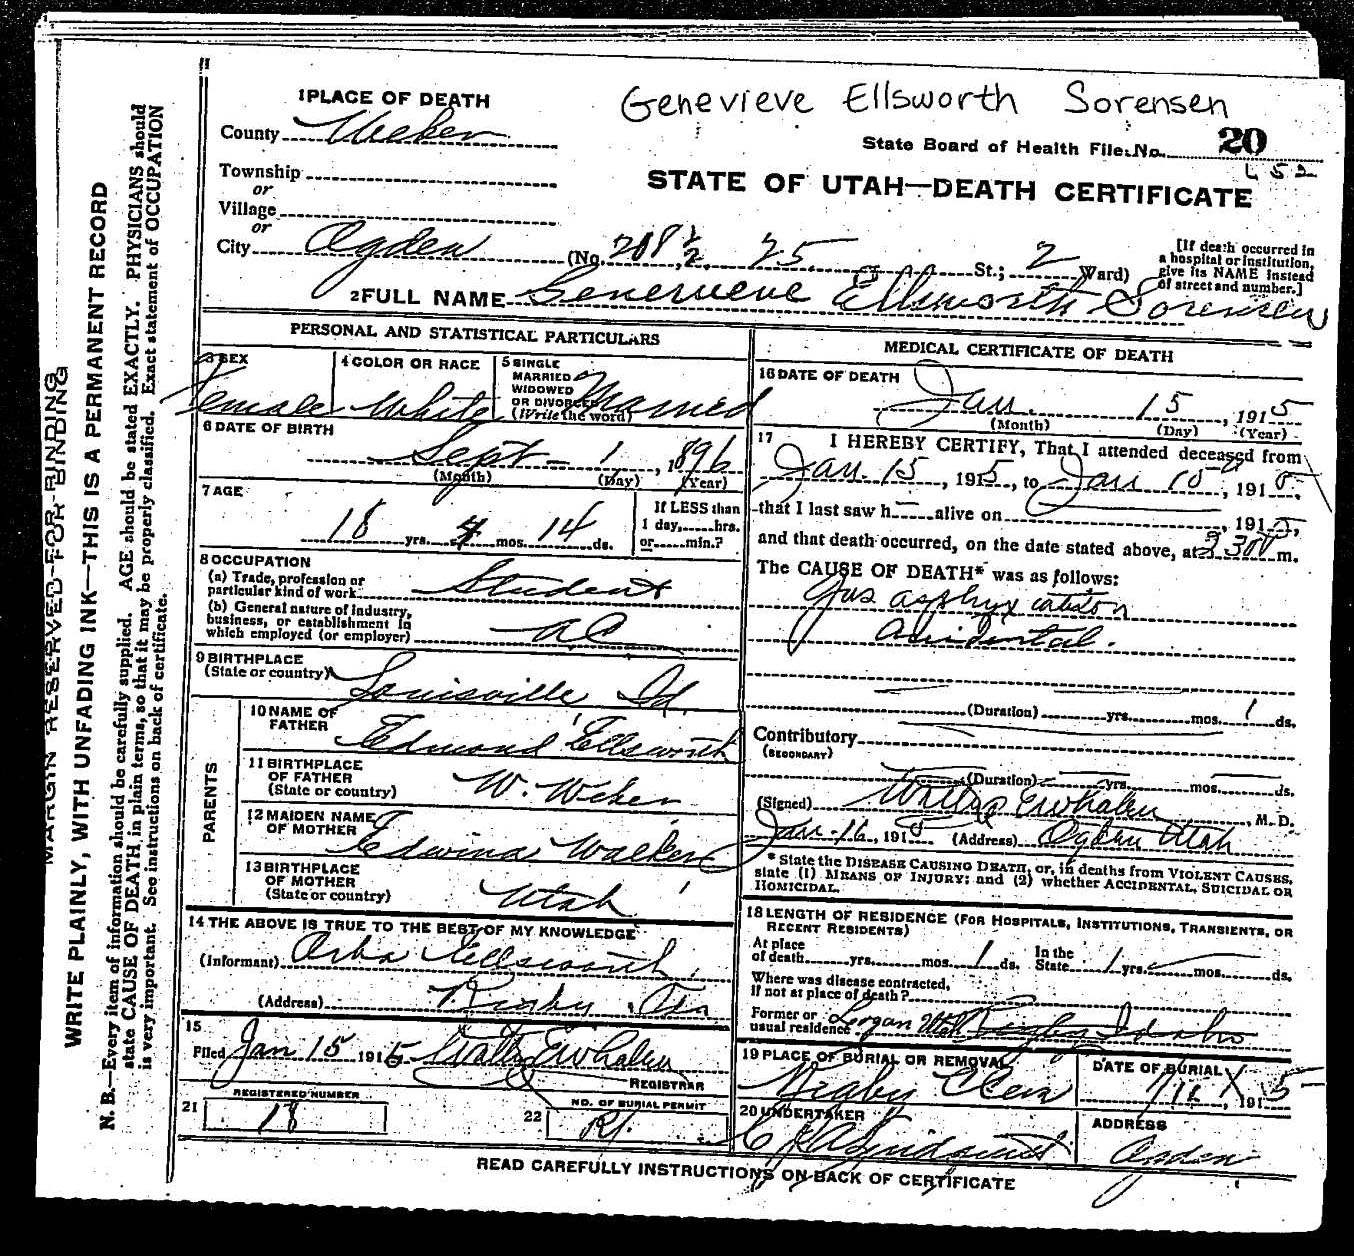 Genevieve Ellsworth Sorensen
1 PLACE OF DEATH
County Weber
State Board of Health File No. 20
L 52
STATE OF UTAH—DEATH CERTIFICATE
Township
or
Village
or
City Ogden (No. 208½ 25 St.; 2 Ward)
[If death occurred in a hospital or institution, give its NAME instead of street and number.]
2 FULL NAME Generveve Ellsworth Sorensen
PERSONAL AND STATISTICAL PARTICULARS
3 SEX Female
4 COLOR OR RACE White
5 SINGLE MARRIED WIDOWED OR DIVORCED (Write the word) Married
6 DATE OF BIRTH
Sept - 1, 1896
(Month) (Day) (Year)
7 AGE
18 yrs. 4 mos. 14 ds.
If LESS than 1 day,......hrs. or......min.?
8 OCCUPATION
(a) Trade, profession or particular kind of work Student
(b) General nature of industry, business, or establishment in which employed (or employer) A C
9 BIRTHPLACE (State or country) Louisville Id.
PARENTS
10 NAME OF FATHER Edmond Ellsworth
11 BIRTHPLACE OF FATHER (State or country) W. Weber
12 MAIDEN NAME OF MOTHER Edwina Walker
13 BIRTHPLACE OF MOTHER (State or country) Utah
14 THE ABOVE IS TRUE TO THE BEST OF MY KNOWLEDGE
(Informant) Ellsworth
(Address) Rigby
15
Filed Jan 15 1915 Ewhalen
REGISTRAR
REGISTERED NUMBER
21 18
NO. OF BURIAL PERMIT
22
MEDICAL CERTIFICATE OF DEATH
16 DATE OF DEATH
Jan. 15, 1915
(Month) (Day) (Year)
17 I HEREBY CERTIFY, That I attended deceased from
Jan. 15, 1915, to Jan 15, 191
that I last saw h alive on , 191
and that death occurred, on the date stated above, at m.
The CAUSE OF DEATH* was as follows:
Gas asphyxiation
accidental.
(Duration) yrs. mos. 1 ds.
Contributory
(SECONDARY)
(Duration) yrs. mos. ds.
(Signed) Ewhalen, M. D.
Jan-16, 191 (Address) Ogden Utah
* State the DISEASE CAUSING DEATH, or, in deaths from VIOLENT CAUSES,
state (1) MEANS OF INJURY; and (2) whether ACCIDENTAL, SUICIDAL OR
HOMICIDAL.
18 LENGTH OF RESIDENCE (FOR HOSPITALS, INSTITUTIONS, TRANSIENTS, OR
RECENT RESIDENTS)
At place of death yrs. mos. 1 ds. In the State 1 yrs. mos. ds.
Where was disease contracted,
If not at place of death?
Former or usual residence Logan Utah Rigby Idaho
19 PLACE OF BURIAL OR REMOVAL Rigby
DATE OF BURIAL
20 UNDERTAKER Lindquist
ADDRESS Ogden
READ CAREFULLY INSTRUCTIONS ON BACK OF CERTIFICATE
MARGIN RESERVED FOR BINDING
WRITE PLAINLY, WITH UNFADING INK—THIS IS A PERMANENT RECORD
N. B.—Every item of information should be carefully supplied. AGE should be stated EXACTLY. PHYSICIANS should
state CAUSE OF DEATH in plain terms, so that it may be properly classified. Exact statement of OCCUPATION
is very important. See instructions on back of certificate.